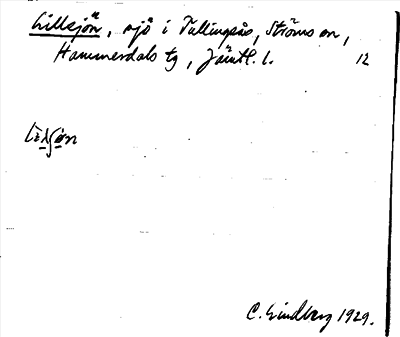 Lillsjön, sjö i Tullingsås, Ströms sn,
Hammerdals tg, Jämtl. l. 12
C. Lindberg 1929.